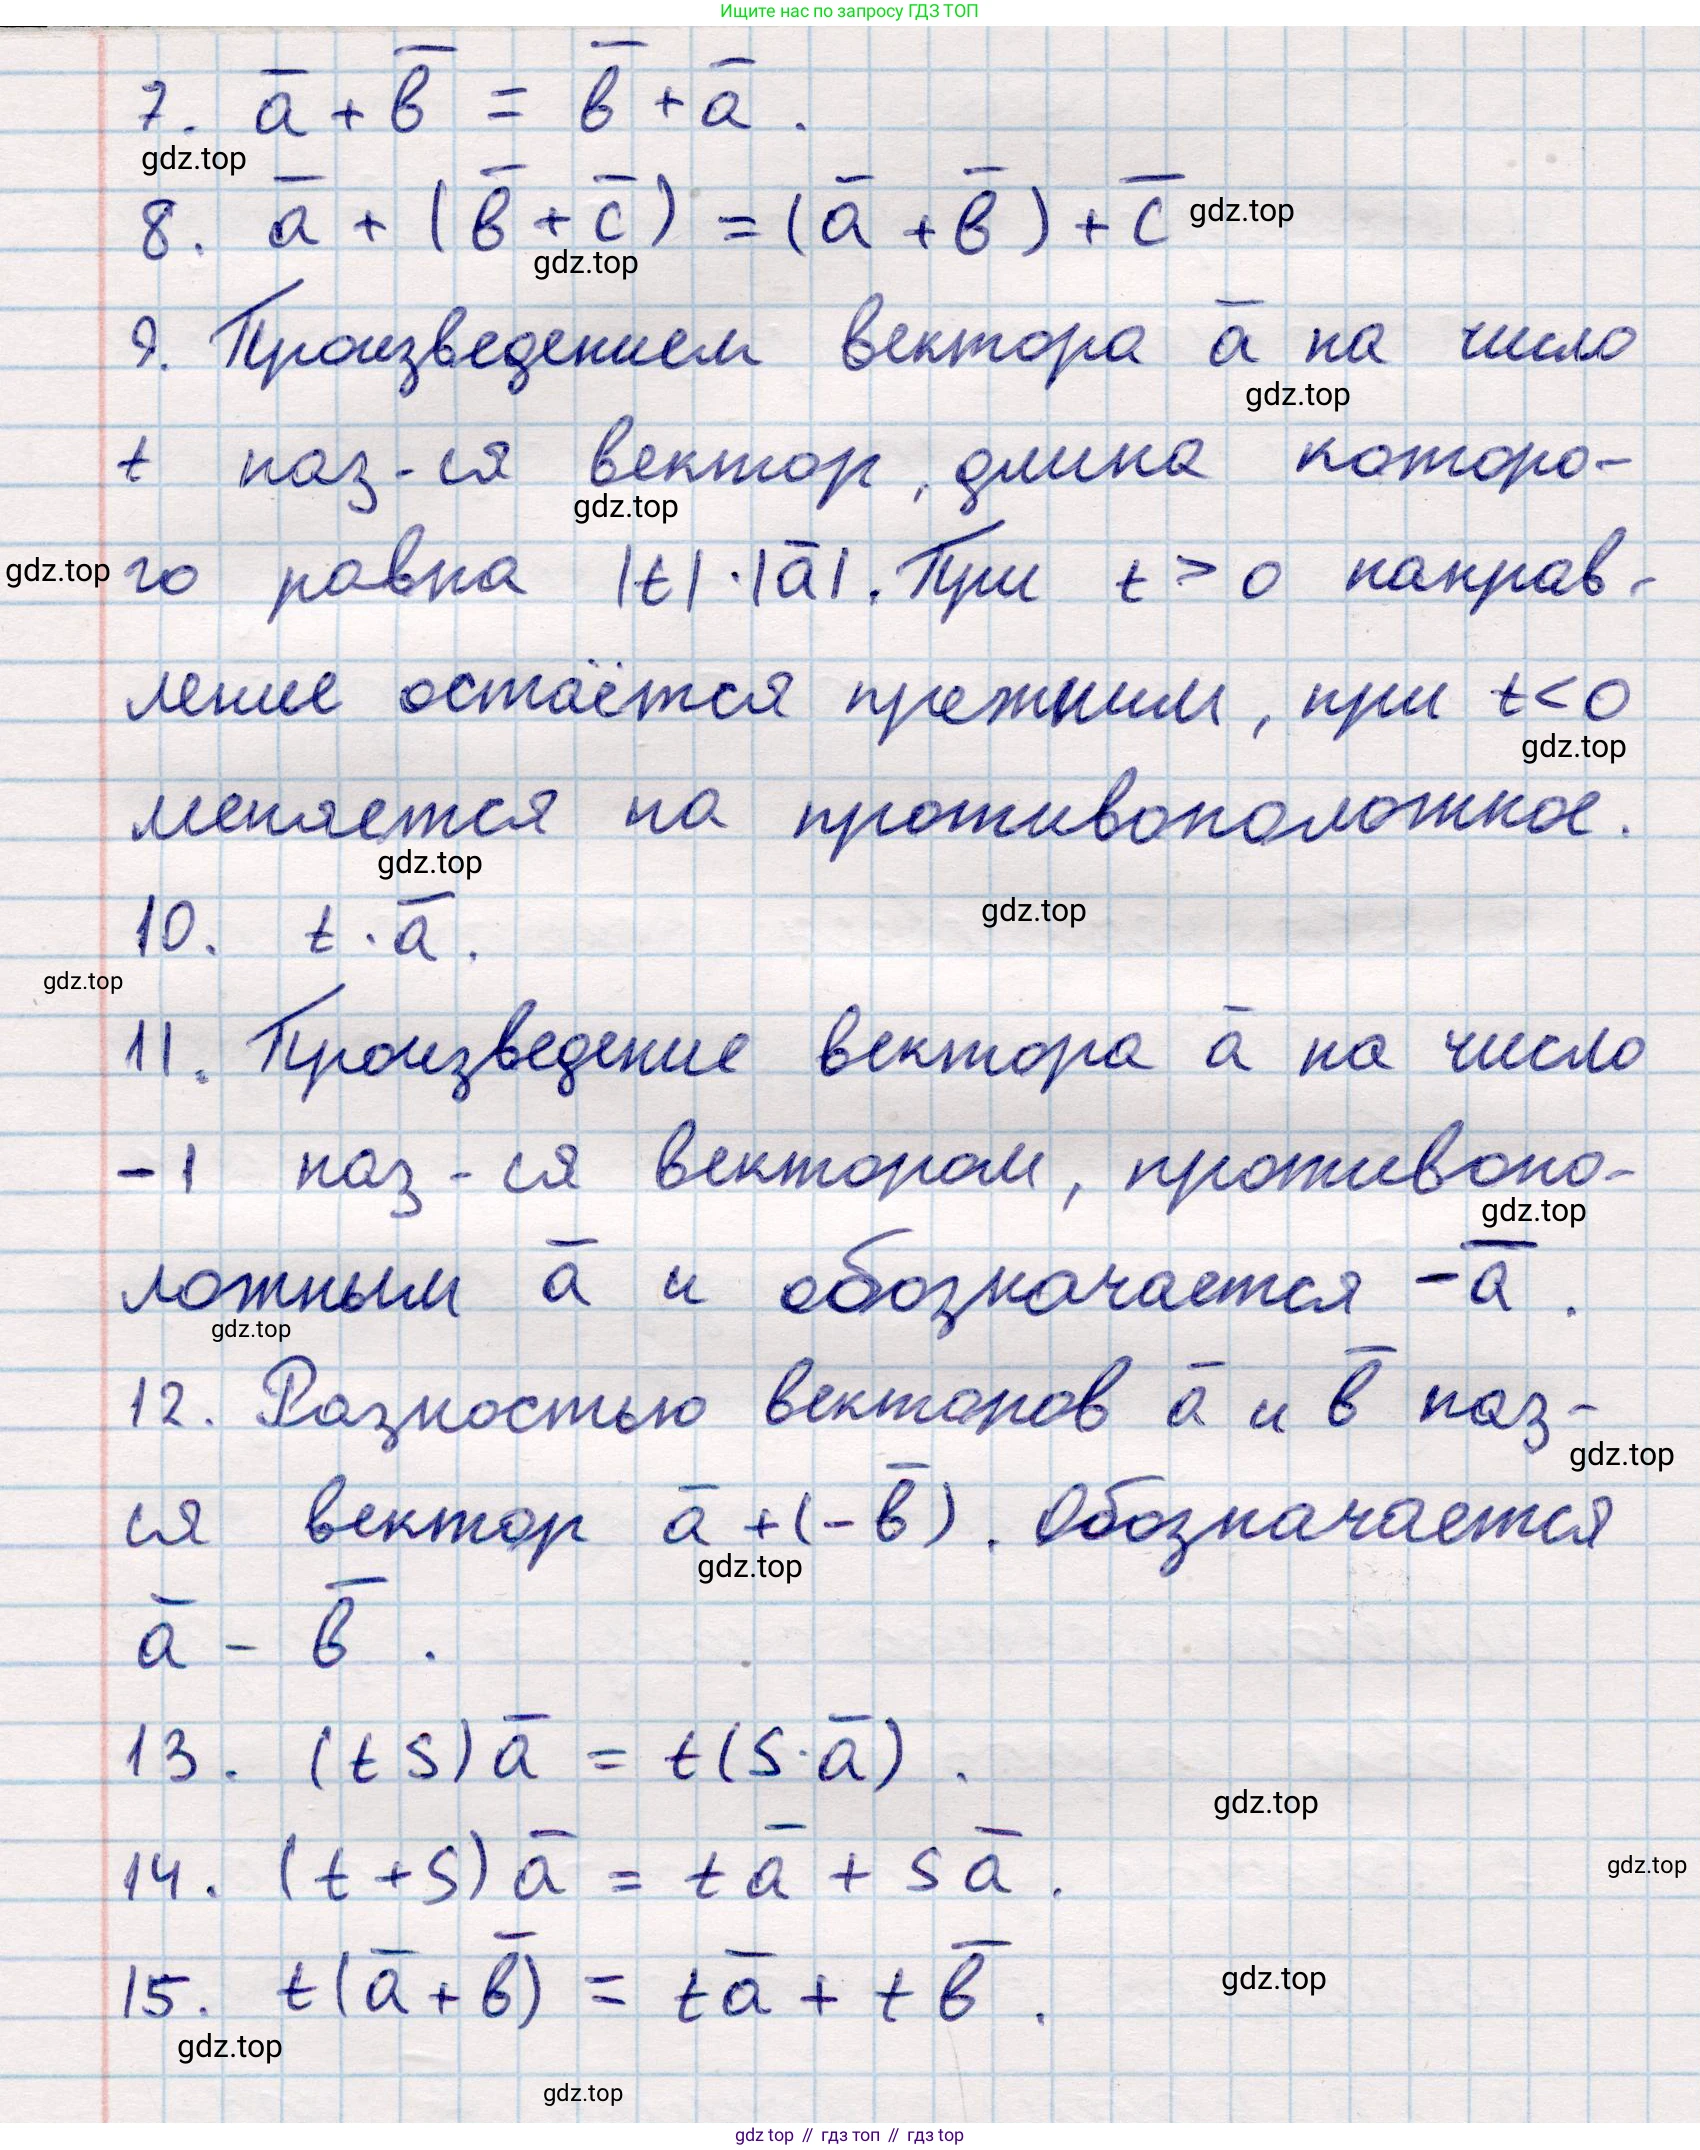 Ищите нас по запросу ГДЗ ТОП
7. a̅ + b̅ = b̅ + a̅.
gdz.top
8. a̅ + (b̅ + c̅) = (a̅ + b̅) + c̅ gdz.top
gdz.top
9. Произведением вектора a̅ на число
gdz.top
t наз-ся вектор, длина которо-
gdz.top
gdz.top го равна |t|·|a̅|. При t > 0 направ-
ление остаётся прежним, при t < 0
gdz.top
меняется на противоположное.
gdz.top
gdz.top
10. t · a̅.
gdz.top
11. Произведение вектора a̅ на число
-1 наз-ся вектором, противопо-
gdz.top
ложным a̅ и обозначается -a̅.
gdz.top
12. Разностью векторов a̅ и b̅ наз-
gdz.top
ся вектор a̅ + (-b̅). Обозначается
gdz.top
a̅ - b̅.
13. (ts)a̅ = t(s·a̅).
gdz.top
14. (t+s)a̅ = ta̅ + sa̅.
gdz.top
15. t(a̅ + b̅) = ta̅ + tb̅.
gdz.top
gdz.top
gdz.top
gdz top // гдз топ // гдз top